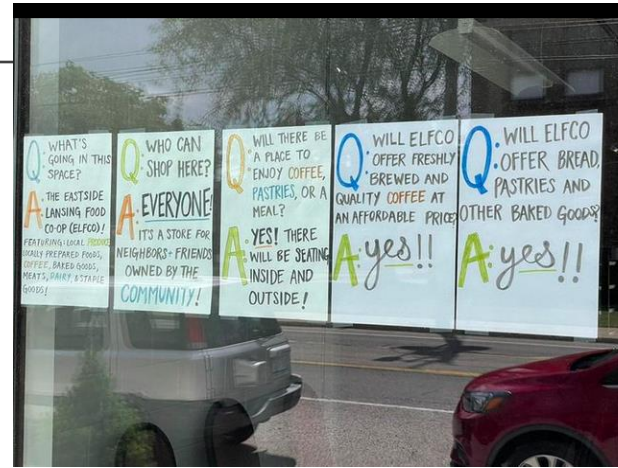 Q: WHAT'S
GOING IN THIS
SPACE?
A: THE EASTSIDE
LANSING FOOD
CO-OP (ELFCO)!
FEATURING: LOCAL PRODUCE
LOCALLY PREPARED FOODS,
COFFEE, BAKED GOODS,
MEATS, DAIRY, & STAPLE
GOODS!
Q: WHO CAN
SHOP HERE?
A: EVERYONE!
IT'S A STORE FOR
NEIGHBORS + FRIENDS
OWNED BY THE
COMMUNITY!
Q: WILL THERE BE
A PLACE TO
ENJOY COFFEE,
PASTRIES, OR A
MEAL?
A: YES! THERE
WILL BE SEATING
INSIDE AND
OUTSIDE!
Q: WILL ELFCO
OFFER FRESHLY
BREWED AND
QUALITY COFFEE AT
AN AFFORDABLE PRICE?
A: yes!!
Q: WILL ELFCO
OFFER BREAD,
PASTRIES AND
OTHER BAKED GOODS?
A: yes!!